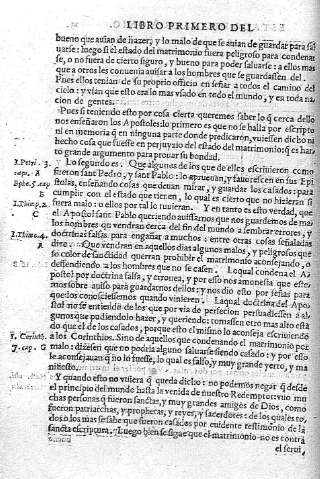 LIBRO PRIMERO DEL
bueno que auian de hazer, y lo malo de que se auian de guardar para sal
uarse: luego si el estado del matrimonio fuera peligroso para condenar
se, o no fuera de cierto siguro, y bueno para poder saluarse: a ellos mas
que a otros les conuenia auisar a los hombres que se guardassen del.
Pues ellos tenian de su proprio officio enseñar a todos el camino del
cielo: y vian que esto era lo mas vsado en todo el mundo, y en toda na
cion de gentes.
Pues si teniendo esto por costa queremos saber lo q̃ cerca dello
nos enseñaron los Apostoles lo primero es que no se halla por escripto
ni en memoria q̃ en ninguna parte donde predicaron, vuiessen dicho ni
hecho cosa que fuesse en perjuyzio del estado del matrimonio: q̃ es har
to grande argumento para prouar su bondad.
1. Petri. 3. y Lo segundo es. Que algunos de los que de ellos escriuieron como
cap. A fueron sant Pedro, y sant Pablo: lo aprouan, y fauorescen en sus Epi
Ephe. 5. cap stolas, enseñando cosas que deuan mirar, y guardar los casados: para
B cumplir con el estado que tienen, lo qual es cierto que no hizieran si
1. Thim. 2. fuera malo: o ellos por tal lo tuuieran. Y en tanto es esto verdad, que
C el Apostol sant Pablo queriendo auisarnos que nos guardemos de ma
los hombres que vendran cerca del fin del mundo a sembrar errores, y
1. Thimo. 4. doctrinas falsas para engañar a muchos: entre otras cosas señaladas
A dize. Que vendran en aquellos dias algunos malos, y peligrosos que
so color de sanctidad querran prohibir el matrimonio aconsejando, o
deffendiendo a los hombres que no se casen. Lo qual condena el A-
postol por doctrina falsa, y erronea, y por esso nos amonesta que este-
mos sobre auiso para guardarnos dellos: y nos dio esto por señas para
que los conosciessemos quando viniesen. La qual doctrina del Apo-
stol no se entiende de los que por via de persecion persuadiessen a al-
gunos que pudiendolo hazer, y queriendo: tomassen otro mas alto esta
do que el de los casados, porque esto el mismo lo aconseja escriuiendo
1. Corinth. a los Corinthios. Sino de aquellos que condenando el matrimonio por
7. cap. G malo: dizessen que no podria alguno saluarse siendo casado: y por esso
le aconsejauan q̃ no lo fuesse, lo qual es falso, y muy grande yerro, y ma
nifiesto.
Y quando esto no vuiera q̃ queda dicho: no podemos negar q̃ desde
el principio del mundo hasta la venida de nuestro Redemptor: vuo mu
chas personas q̃ fueron sanctas, y muy grandes amigos de Dios, como
fueron patriarchas, y prophetas, y reyes, y sacerdotes: de los quales to,
dos o los mas se sabe que fueron casados por euidente testimonio de la
sancta escriptura. Luego bien se sigue que el matrimonio no es contra
el serui